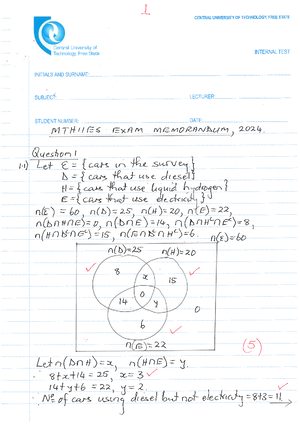 1
CENTRAL UNIVERSITY OF TECHNOLOGY, FREE STATE
Central University of
Technology, Free State
INTERNAL TEST
INITIALS AND SURNAME:
SUBJECT:
LECTURER
STUDENT NUMBER:
DATE
MTH11ES EXAM MEMORANDUM, 2024.
Question 1
1.1) Let Ɛ = {cars in the survey}
D = {cars that use diesel}
H = {cars that use liquid hydrogen}
E = {cars that use electricity}
n(Ɛ) = 60, n(D)=25, n(H)=20, n(E)=22,
n(D∩H∩E)=0, n(D∩E)=14, n(D∩Hᶜ∩Eᶜ)=8,
n(H∩Dᶜ∩Eᶜ)=15, n(E∩Dᶜ∩Hᶜ)=6.
n(Ɛ)=60
n(D)=25 n(H)=20
8 x 15
0
14 y 0
6
n(E)=22
(5)
Let n(D∩H)=x, n(H∩E)=y.
∴ 8+x+14=25, x=3
14+y+6=22, y=2.
∴ Nº of cars using diesel but not electricity =8+3=11